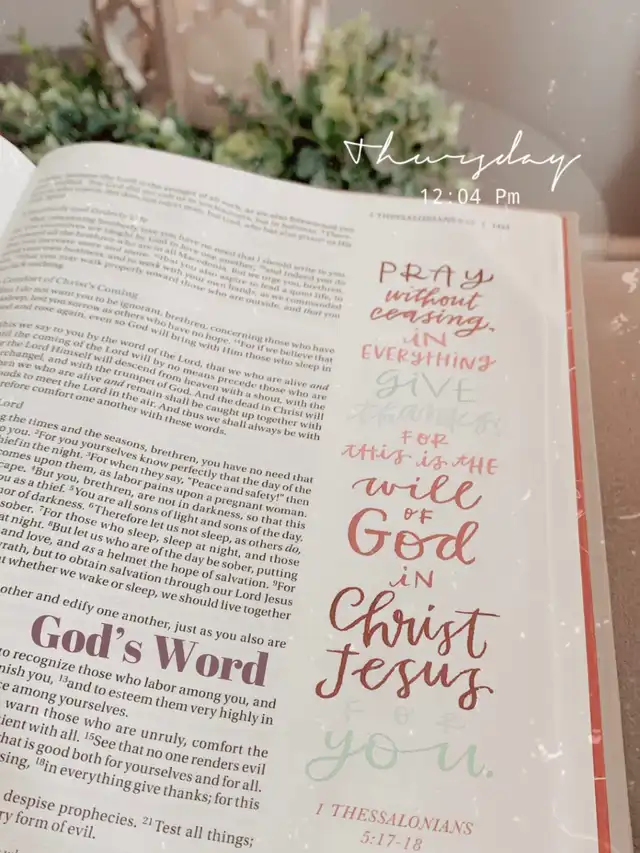 Thursday
12:04 Pm
1 THESSALONIANS
PRAY
without
ceasing,
in
EVERYTHING
GIVE
thanks;
FOR
this is the
will
OF
God
in
Christ
Jesus
FOR
you.
1 THESSALONIANS
5:17-18
of Christ's Coming
I do not want you to be ignorant, brethren, concerning those who have
lest you sorrow as others who have no hope. 14For if we believe that
and rose again, even so God will bring with Him those who sleep in
this we say to you by the word of the Lord, that we who are alive and
the coming of the Lord will by no means precede those who are
the Lord Himself will descend from heaven with a shout, with the
archangel, and with the trumpet of God. And the dead in Christ will
we who are alive and remain shall be caught up together with
to meet the Lord in the air. And thus we shall always be with
comfort one another with these words.
Lord
the times and the seasons, brethren, you have no need that
to you. 2For you yourselves know perfectly that the day of the
thief in the night. 3For when they say, "Peace and safety!" then
comes upon them, as labor pains upon a pregnant woman.
4But you, brethren, are not in darkness, so that this
you as a thief. 5You are all sons of light and sons of the day.
nor of darkness. 6Therefore let us not sleep, as others do,
sober. 7For those who sleep, sleep at night, and those
at night. 8But let us who are of the day be sober, putting
and love, and as a helmet the hope of salvation. 9For
wrath, but to obtain salvation through our Lord Jesus
whether we wake or sleep, we should live together
other and edify one another, just as you also are
God's Word
to recognize those who labor among you, and
13and to esteem them very highly in
among yourselves.
warn those who are unruly, comfort the
with all. 15See that no one renders evil
what is good both for yourselves and for all.
18in everything give thanks; for this
despise prophecies. 21Test all things;
form of evil.